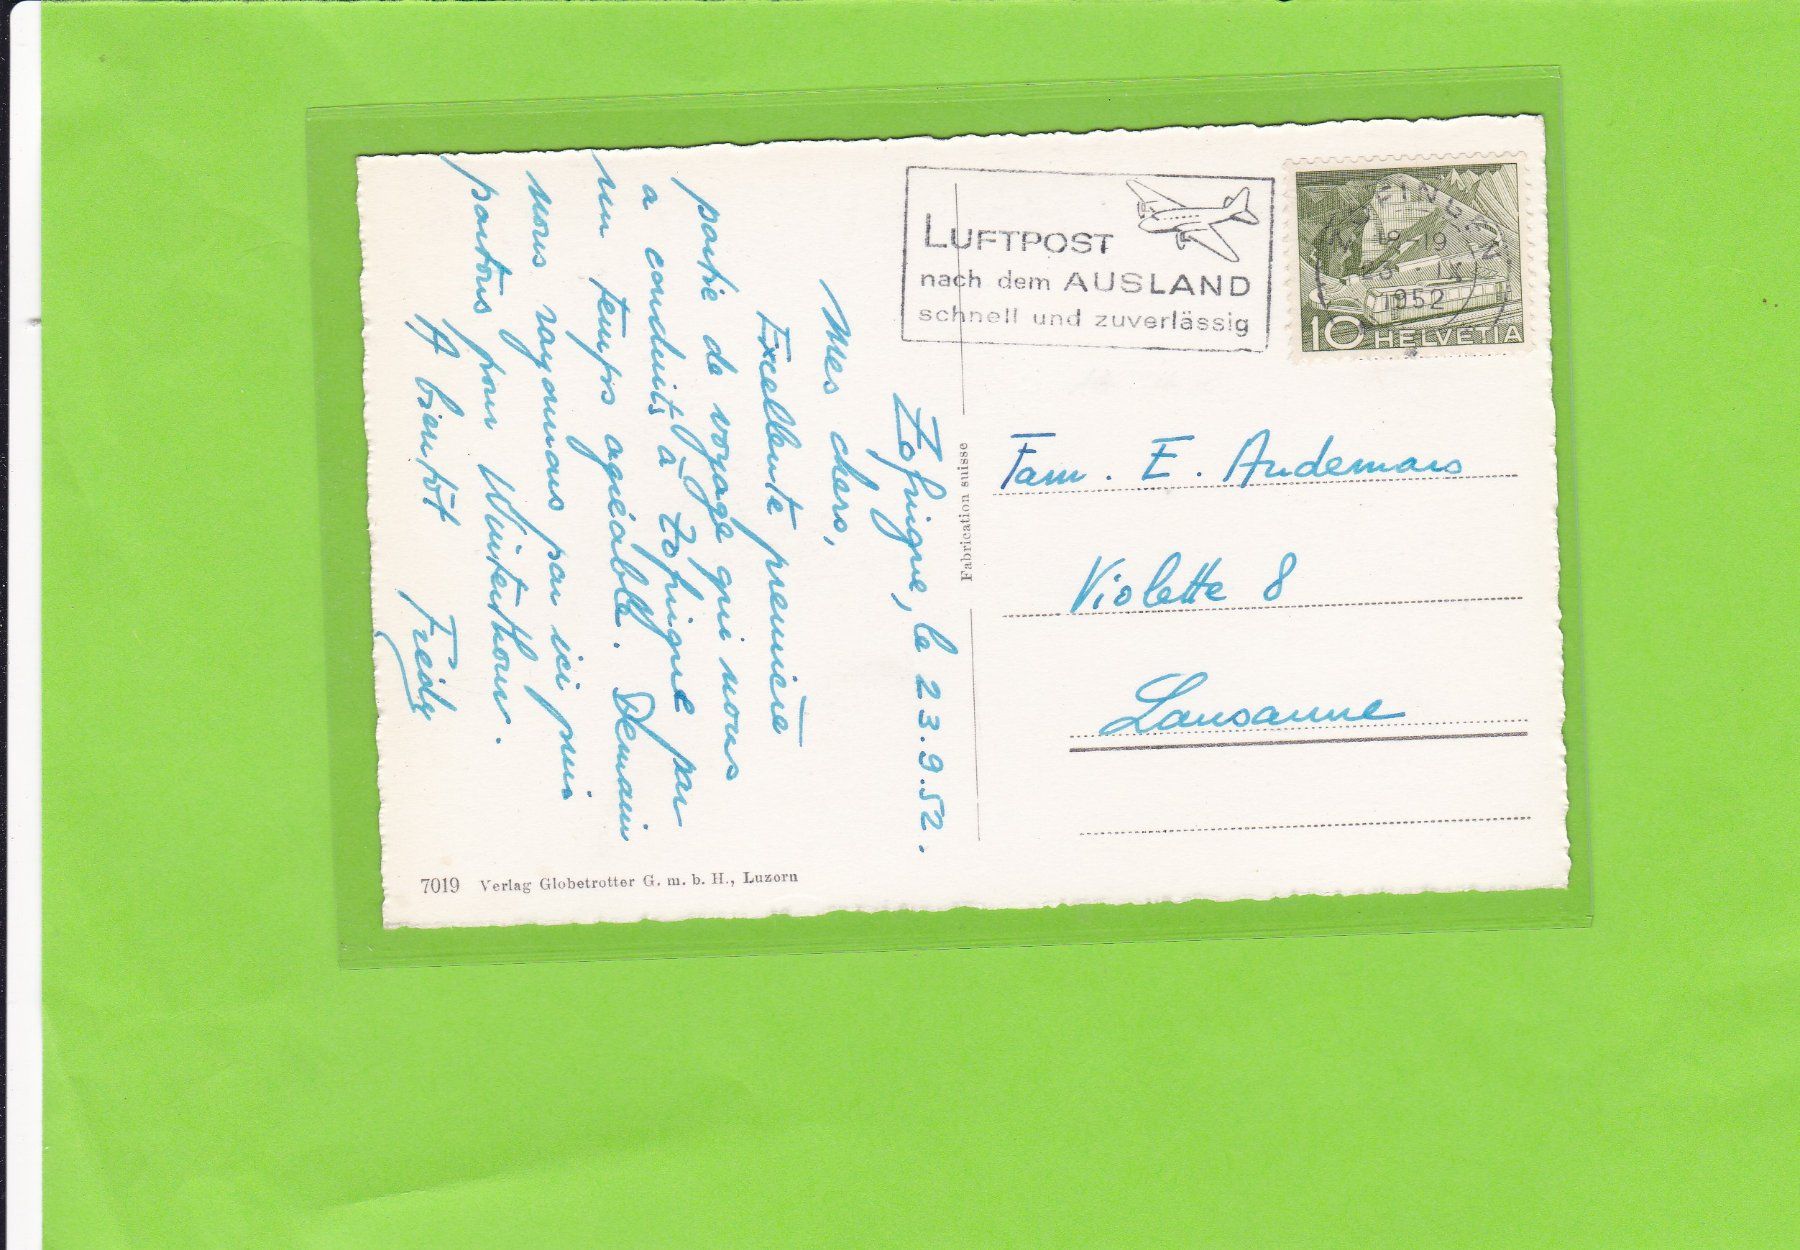 LUFTPOST
nach dem AUSLAND
schnell und zuverlässig
18-19
1952
10 HELVETIA
Zofingue, le 23.9.52.
Mes chers,
Excellente première
partie de voyage qui nous
a conduits à Zofingue par
un temps agréable. Demain
nous rayonnons par ici puis
partons pour Winterthour.
A bientôt Frédy
Fabrication suisse
Fam. E. Audemars
Violette 8
Lausanne
7019 Verlag Globetrotter G. m. b. H., Luzern